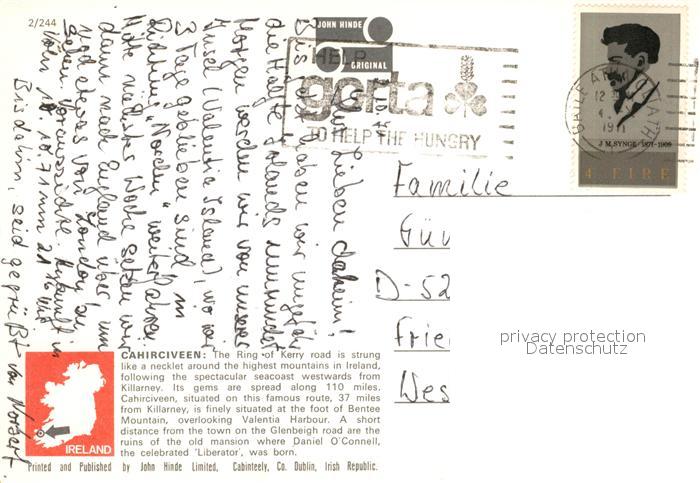 2/244
JOHN HINDE
ORIGINAL
HELP
gorta
TO HELP THE HUNGRY
BAILE ÁTHA CLIATH
1971
J.M.SYNGE 1871-1909
4 EIRE
Ihr Lieben daheim!
Bis jetzt haben wir ungefähr
die Hälfte Irlands umrundet.
Morgen werden wir von unserer
Insel (Valentia Island), wo wir
3 Tage geblieben sind, in
Richtung "Norden" weiterfahren.
Mitte nächster Woche setzen wir
dann nach England über, um
noch etwas von London zu
sehen. Voraussichtl. Ankunft in
Bis dahin, seid gegrüßt von Norbert.
Familie
Gü
D-52
Frie
Wes
privacy protection
Datenschutz
CAHIRCIVEEN: The Ring of Kerry road is strung
like a necklet around the highest mountains in Ireland,
following the spectacular seacoast westwards from
Killarney. Its gems are spread along 110 miles.
Cahirciveen, situated on this famous route, 37 miles
from Killarney, is finely situated at the foot of Bentee
Mountain, overlooking Valentia Harbour. A short
distance from the town on the Glenbeigh road are the
ruins of the old mansion where Daniel O'Connell,
the celebrated 'Liberator', was born.
IRELAND
Printed and Published by John Hinde Limited, Cabinteely, Co. Dublin, Irish Republic.